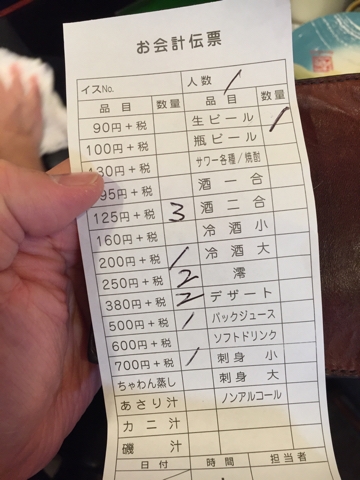 お会計伝票
イスNo. 人数 /
品目 数量 品目 数量
90円+税 生ビール /
100円+税 瓶ビール
130円+税 サワー各種/焼酎
95円+税 酒一合
125円+税 3 酒二合
160円+税 冷酒小
200円+税 / 冷酒大
250円+税 2 澪
380円+税 2 デザート
500円+税 / パックジュース
600円+税 ソフトドリンク
700円+税 / 刺身小
ちゃわん蒸し 刺身大
あさり汁 ノンアルコール
カニ汁
磯汁
日付 時間 担当者